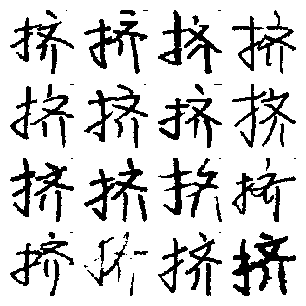 挤挤挤挤
挤挤挤挤
挤挤挤挤
挤挤挤挤